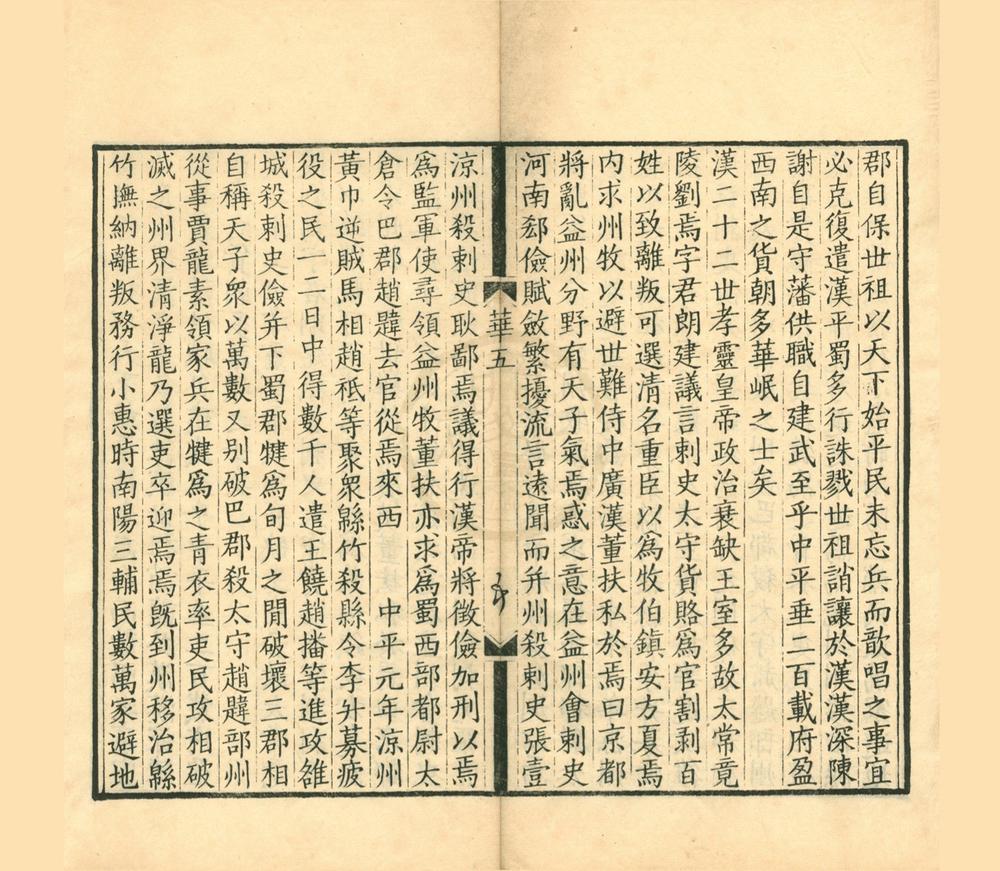 郡自保世祖以天下始平民未忘兵而歆唱之事宜
必克復遣漢平蜀多行誅戮世祖誚讓於漢漢深陳
謝自是守藩供職自建武至乎中平垂二百載府盈
西南之貨朝多華岷之士矣
漢二十二世孝靈皇帝政治衰缺王室多故太常竟
陵劉焉字君朗建議言刺史太守貨賂為官割剥百
姓以致離叛可選清名重臣以為牧伯鎮安方夏焉
内求州牧以避世難侍中廣漢董扶私於焉曰京都
將亂益州分野有天子氣焉惑之意在益州會刺史
河南郄儉賦斂繁擾流言遠聞而并州殺刺史張壹
華五
涼州殺刺史耿鄙焉議得行漢帝將徵儉加刑以焉
為監軍使尋領益州牧董扶亦求為蜀西部都尉太
倉令巴郡趙韙去官從焉來西　中平元年涼州
黃巾逆賊馬相趙祗等聚衆緜竹殺縣令李升募疲
役之民一二日中得數千人遣王饒趙播等進攻雒
城殺刺史儉并下蜀郡犍為旬月之閒破壞三郡相
自稱天子衆以萬數又别破巴郡殺太守趙韙部州
從事賈龍素領家兵在犍為之青衣率吏民攻相破
滅之州界清淨龍乃選吏卒迎焉焉旣到州移治緜
竹撫納離叛務行小惠時南陽三輔民數萬家避地